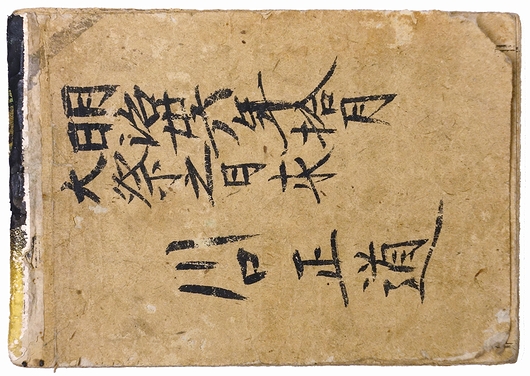 明治卅六年拾月
大祭之日求
川口正道